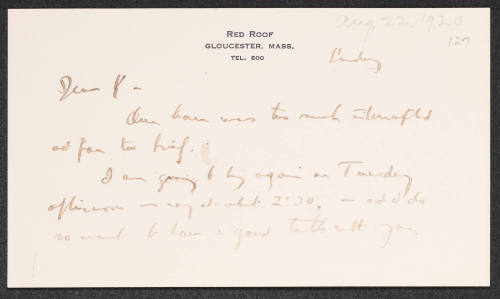 Aug. 22, 1920
127
RED ROOF
GLOUCESTER, MASS.
TEL. 600
Sunday
Dear P –
Our hour was too much interrupted
and far too brief.
I am going to try again on Tuesday
afternoon – say at about 2:30, – and do
so want to have a good talk with you